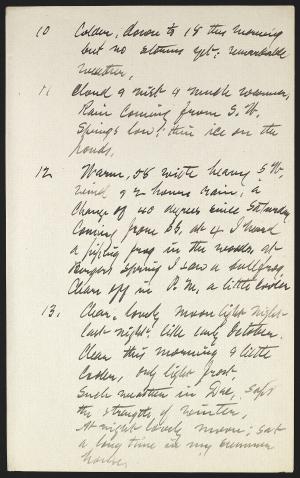 10 Colder, down to 18 this morning
but no storms yet; remarkable
weather,
11 Cloud & mist & much warmer,
Rain coming from S. W.
Springs low; thin ice on the
ponds.
12 Warm, 58 with heavy S. W.
wind & 2 hours rain, a
change of 40 degrees since Saturday
coming from at 4 I heard
a piping frog in the woods, at
Spring I saw a bullfrog
Clears off in P. M. a little colder
13. Clear, lovely moon light night
last night, like early October.
Clear this morning & little
Colder, only light frost
Such weather in Dec, saps
the strength of winter,
At night lovely moon; sat
a long time in my summer
house.